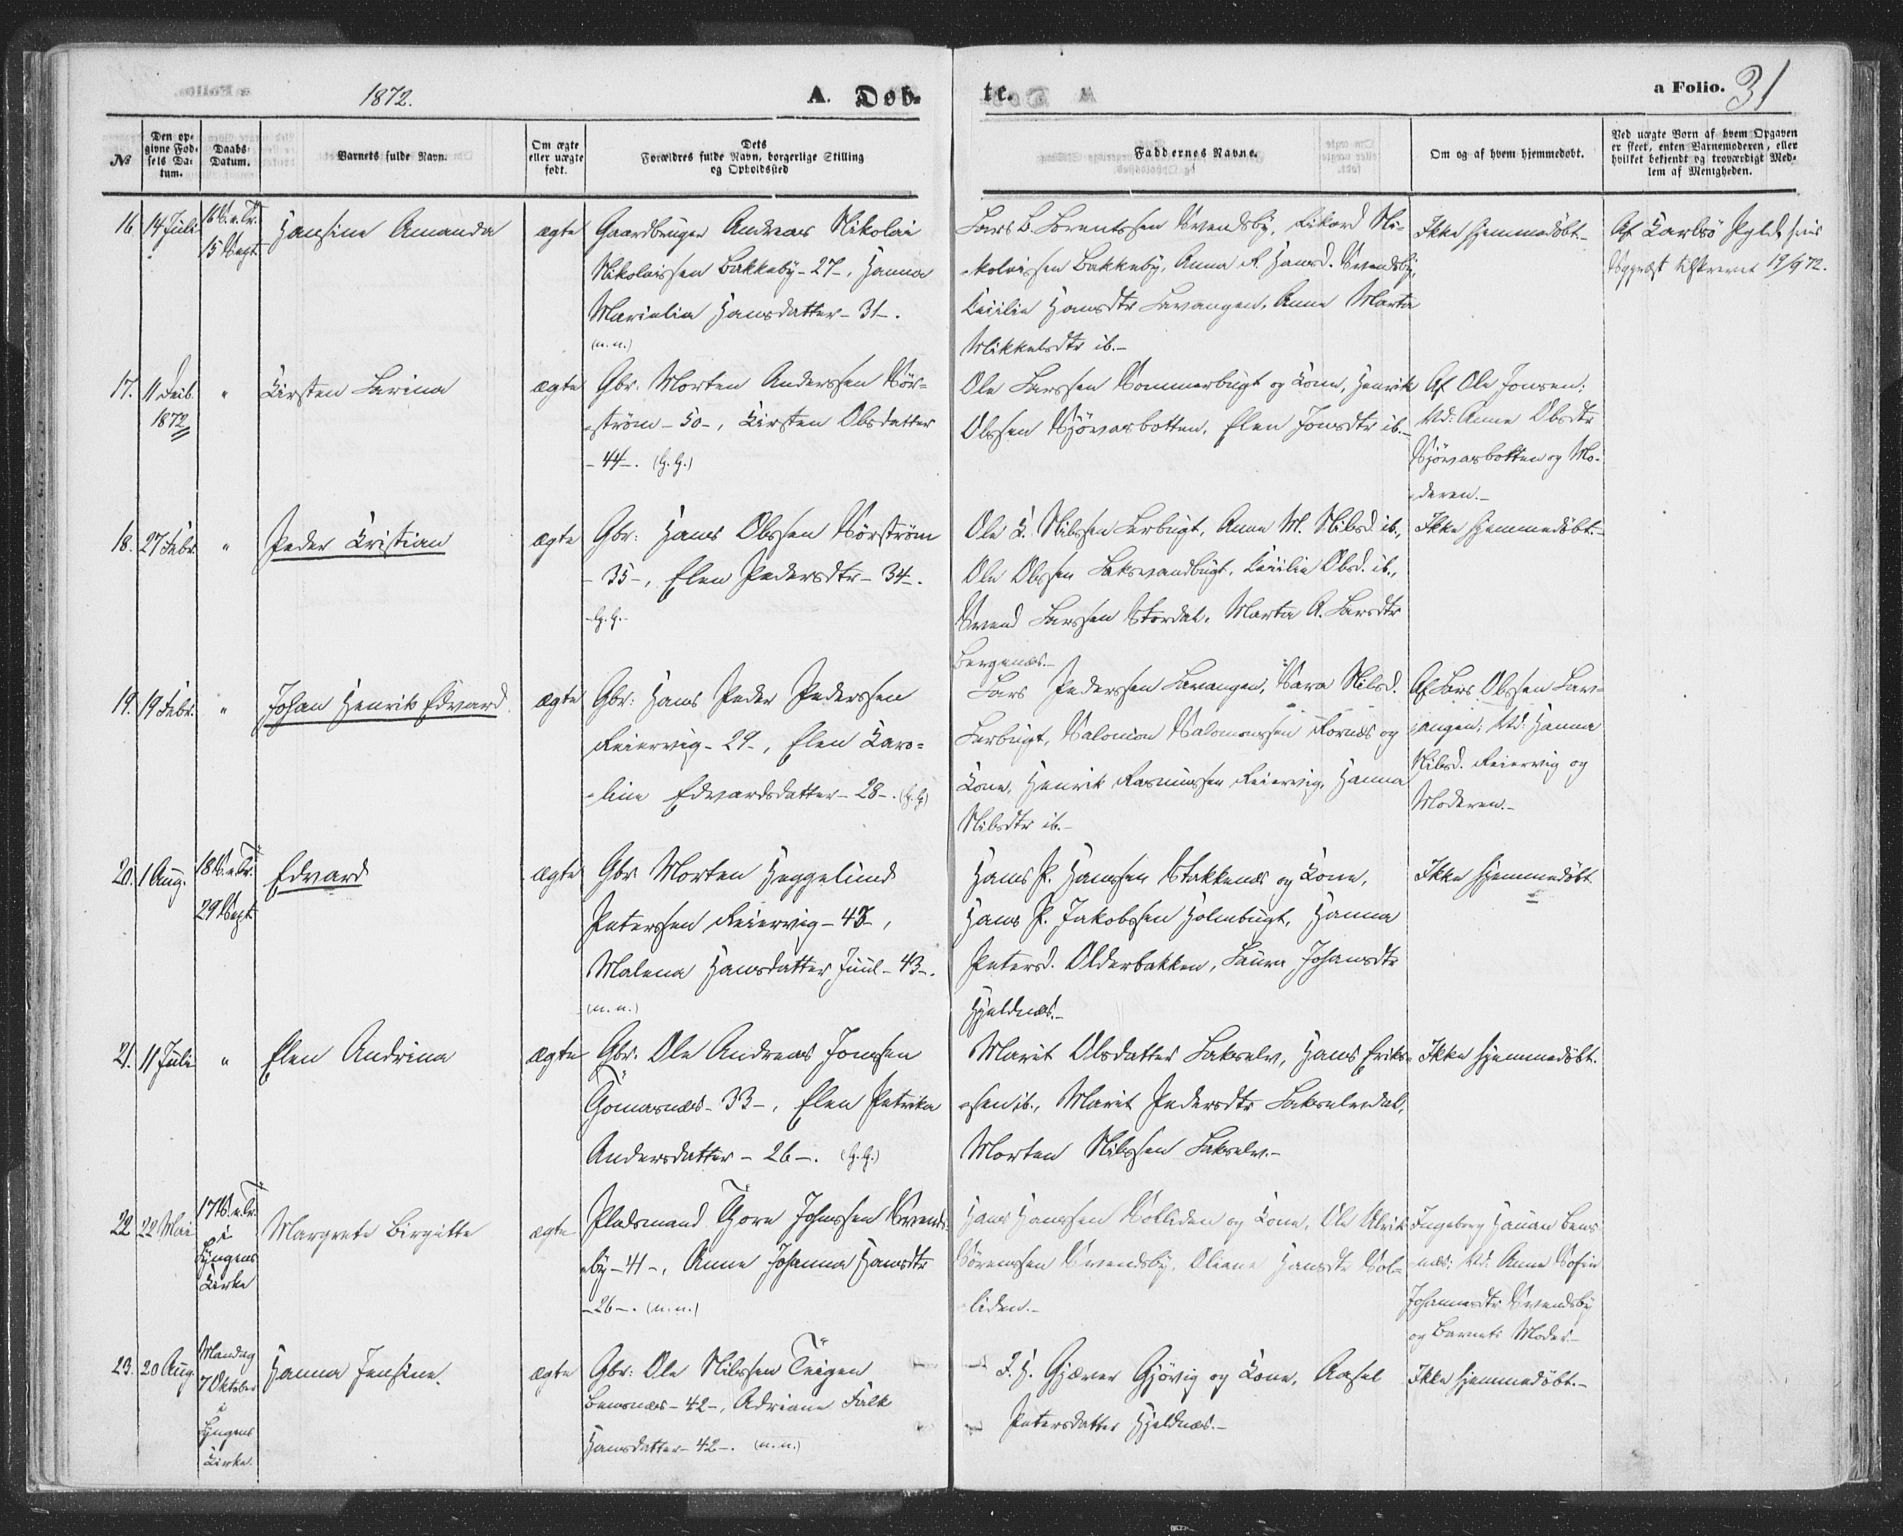 1872.
A. Døb-
te.
a Folio. 31
№
Den op-
givne Fød-
sels Da-
tum.
Daabs
Datum.
Barnets fulde Navn.
Om ægte
eller uægte
født.
Dets
Forældres fulde Navn, borgerlige Stilling
og Opholdssted
Faddernes Navne.
Om og af hvem hjemmedøbt.
Ved uægte Børn af hvem Opgaven
er skeet, enten Barnemoderen, eller
hvilket bekjendt og troværdigt Med-
lem af Menigheden.
16. 14 Juli
16 S. e. Tr.
15 Sept.
Hansine Amanda
ægte
Gaardbruger Andreas Nikolai
Nikolaissen Bakkeby - 27 -, Hanna
Marielia Hansdatter - 31 -.
(n. n.)
Lars B. Lorentssen Svendsby, Rikard Ni-
kolaissen Bakkeby, Anna R. Hansd. Svendsby,
Cecilie Hansdtr Lavangen, Anne Marta
Mikkelsdtr ib. -
Ikke hjemmedøbt. -
Af Karlsö
Sygprest tilskrevet 19/9 72.
17. 11 Feib.
1872
"
Kirsten Larina
ægte
Gbr. Morten Anderssen Sör-
ström - 50 -, Kirsten Olsdatter
- 44 -. (G. G.)
Ole Larssen Sommerbugt og Kone, Henrik
Olssen Sjövasbotten, Elen Jonsdtr ib. -
Af Ole Jonsen;
Vid: Anne Olsdtr
Sjövasbotten og Mo-
deren. -
18. 27 Febr.
"
Peder Kristian
ægte
Gbr: Hans Olssen Sörström
- 35 -, Elen Pedersdtr - 34 -.
G. G.
Ole K. Nilssen Lerbugt, Anne M. Nilsd. ib.,
Ole Olssen Laksvandbugt, Cecilie Olsd. ib.,
Svend Larssen Stordal, Marta A. Larsdtr
Bergenæs. -
Ikke hjemmedöbt. -
19. 19 Febr.
"
Johan Henrik Edvard.
ægte
Gbr: Hans Peder Pederssen
Reiervig - 29 -, Elen Karo-
line Edvardsdatter - 28 -. (G. G)
Lars Pederssen Lavangen, Sara Nilsd.
Lerbugt, Salomon Salomonssen Fornæs og
Kone, Henrik Rasmussen Reiervig, Hanna
Nilsdtr ib. -
Af Lars Olssen Lav-
angen; Vid: Hanna
Nilsd. Reiervig og
Moderen. -
20. 1 Aug.
18 S. e. Tr.
29 Sept.
Edvard
ægte
Gbr Morten Heggelund
Peterssen Reiervig - 43 -,
Malena Hansdatter Juul - 43 -.
(n. n.)
Hans P. Hanssen Stakkenæs og Kone,
Hans P. Jakobssen Holmbugt, Hanna
Petersd. Olderbakken, Laura Johansdtr
Hjeldnæs. -
Ikke hjemmedöbt
21. 11 Juli
"
Elen Andrina
ægte
Gbr. Ole Andreas Jonssen
Gomasnæs - 33 -, Elen Petrika
Andersdatter - 26 -. (G. G.)
Marit Olsdatter Lakselv, Hans Erik-
sen ib., Marit Pedersdtr Lakselvdal,
Morten Nilssen Lakselv. -
Ikke hjemmedöbt.
22. 22 Mai
17 S. e. Tr.
i
Lyngens
Kirke
Margrete Birgitte
ægte
Pladsmand Tjore Johnssen Svends-
by - 41 -, Anne Johanna Hansdtr
- 26 -. (n. n.)
Hans Hanssen Solliden og Kone, Ole Ulrik
Sörenssen Svendsby, Oliane Hansdtr Sol-
liden. -
Ingeborg Hanna Bens-
næs; Vid: Anne Sofie
Johannesdtr Svendsby
og Barnets Moder -
23. 20 Aug.
Mandag
7 Oktober
i
Lyngens
Kirke.
Hanna Jensine.
ægte
Gbr: Ole Nilssen Teigen
Bensnæs - 42 -, Adriane Falk
Hansdatter - 42 -. (n. n.)
J. H. Gjæver Gjövig og Kone, Aasel
Petersdatter Hjeldnæs. -
Ikke hjemmedöbt. -